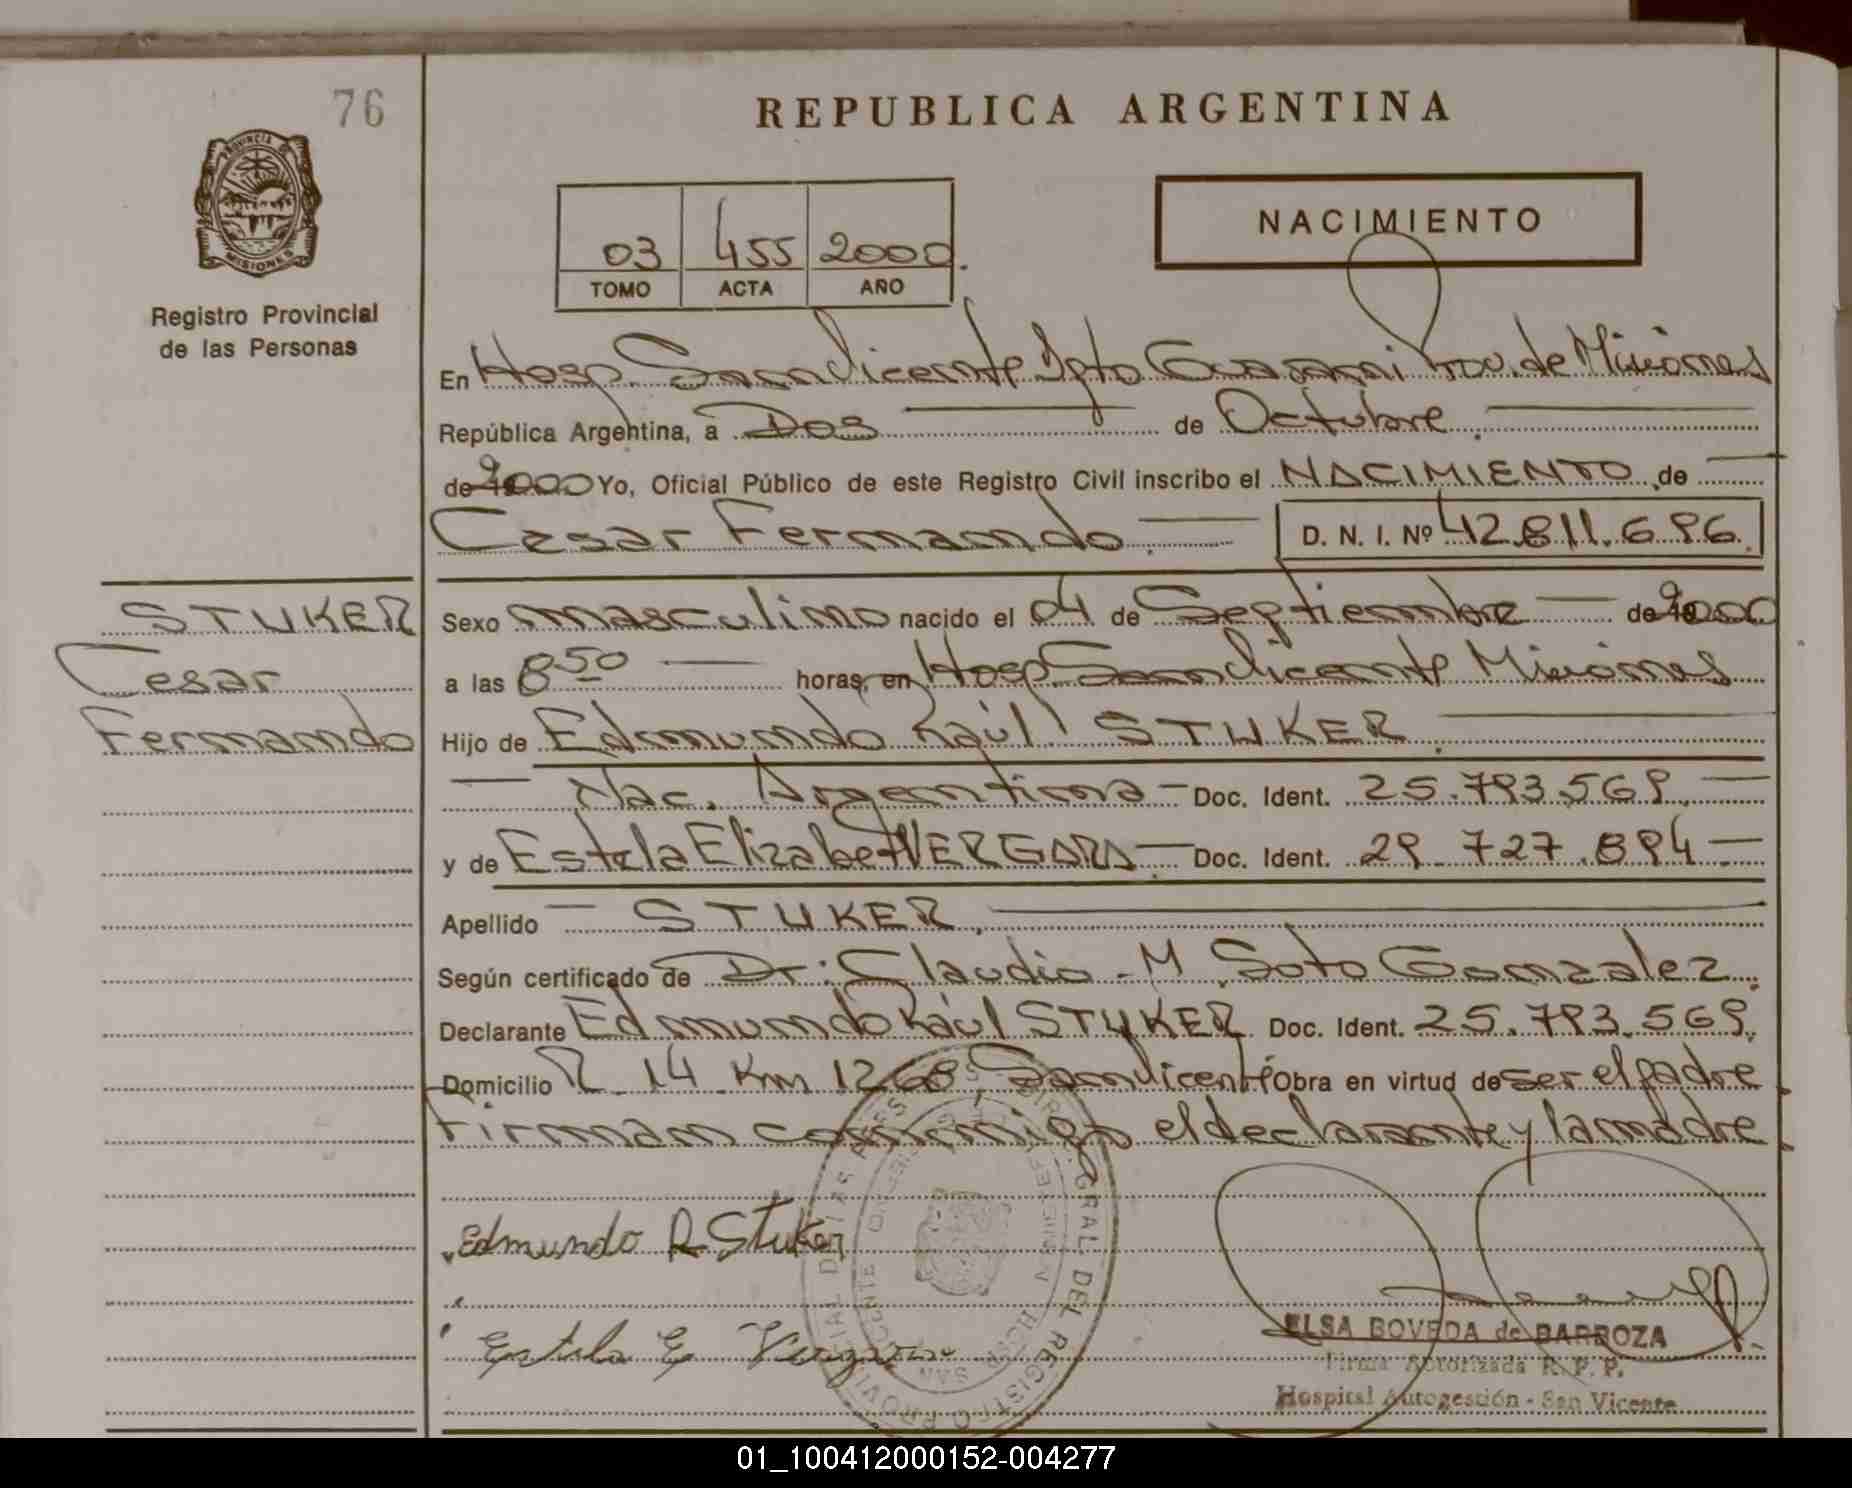 76
REPUBLICA ARGENTINA
PROVINCIA DE
MISIONES
Registro Provincial
de las Personas
NACIMIENTO
03 455 2000.
TOMO ACTA AÑO
En Hosp San Vicente Dpto Guarani Prov. de Misiones
República Argentina, a Dos de Octubre.
de 2000 Yo, Oficial Público de este Registro Civil inscribo el NACIMIENTO de
Cesar Fernando. D. N. I. Nº 42.811.696.
STUKER
Cesar
Fernando
Sexo masculino nacido el 04 de Septiembre de 2000
a las 8:50 horas, en Hosp San Vicente Misiones
Hijo de Edmundo Raúl STUKER.
Nac. Argentina - Doc. Ident. 25.793.569.
y de Estela Elizabet VERGARA. Doc. Ident. 29.727.894
Apellido STUKER.
Según certificado de Dr: Claudio M Soto Gonzalez.
Declarante Edmundo Raúl STUKER Doc. Ident. 25.793.569.
Domicilio R 14 Km 1268 San Vicente Obra en virtud de ser el padre.
Firman conmigo el declarante y la madre.
Edmundo R Stuker
Estela E Vergara
ELSA BOVEDA de BARROZA
Firma Autorizada R. P. P.
Hospital Autogestión - San Vicente
01_100412000152-004277